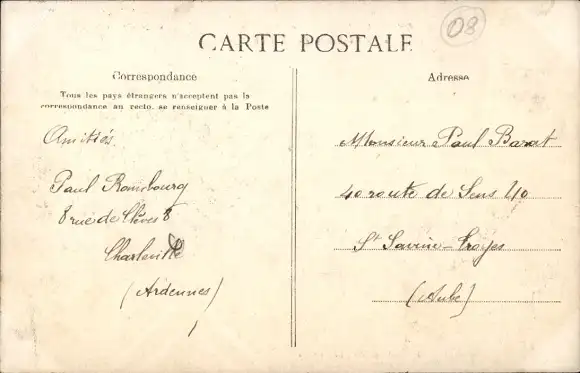 08
CARTE POSTALE
Correspondance
Tous les pays étrangers n'acceptent pas la
correspondance au recto. se renseigner à la Poste
Amitiés
Paul Rombourg
8 rue de Clèves 8
Charleville
(Ardennes)
Adresse
Monsieur Paul Barat
40 route de Sens 40
St Savine-Troyes
(Aube)